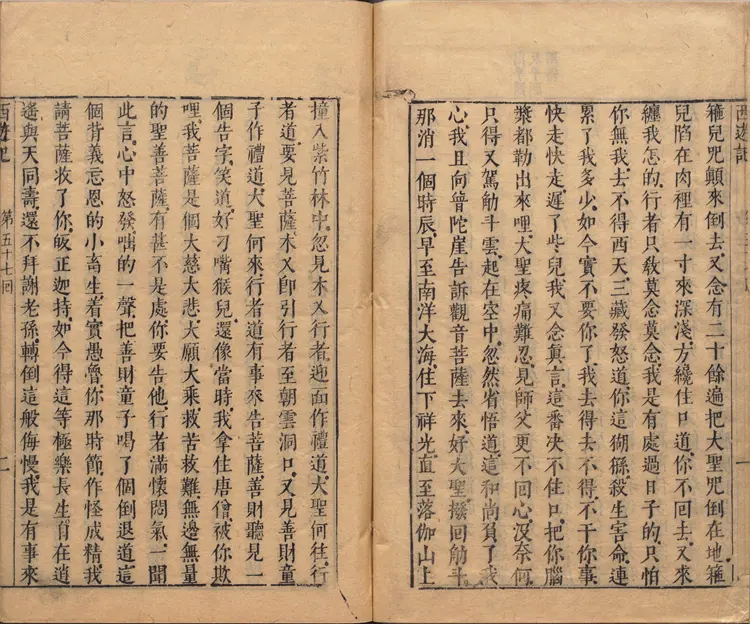 西遊記
箍兒咒顛來倒去、又念有二十餘遍、把大聖咒倒在地、箍
兒陷在肉裡、有一寸來深淺、方纔住口道、你不回去、又來
纏我怎的、行者只教莫念、莫念、我是有處過日子的、只怕
你無我去不得西天、三藏發怒道、你這猢猻殺生害命、連
累了我多少、如今實不要你了、我去得去不得、不干你事、
快走快走、遲了些兒、我又念真言、這番决不住口、把你腦
漿都勒出來哩、大聖疼痛難忍、見師父更不回心、沒奈何
只得又駕觔斗雲、起在空中、忽然省悟道、這和尚負了我
心、我且向普陀崖告訴觀音菩薩去來、好大聖撥回觔斗、
那消一個時辰、早至南洋大海、住下祥光、直至落伽山上
撞入紫竹林中、忽見木叉行者迎面作禮道、大聖何往、行
者道、要見菩薩、木叉卽引行者至朝雲洞口、又見善財童
子作禮道、大聖何來、行者道、有事來告菩薩、善財聽見一
個告字、笑道、好刁嘴猴兒、還像當時我拿住唐僧被你欺
哩、我菩薩是個大慈大悲、大願大乘、救苦救難、無邊無量
的聖善菩薩、有甚不是處、你要告他、行者滿懷悶氣、一聞
此言、心中怒發、咄的一聲、把善財童子喝了個倒退道、這
個背義忘恩的小畜生、着實愚魯、你那時節作怪成精、我
請菩薩收了你、皈正迦持、如今得這等極樂長生、自在逍
遙、與天同壽、還不拜謝老孫、轉倒這般侮慢、我是有事來
西遊記 第五十七回 二